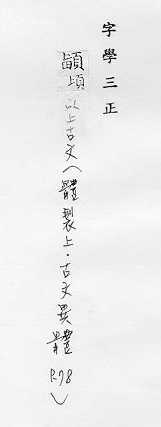 字學三正
顓頊以上古文(體製上.古文異體P.78)